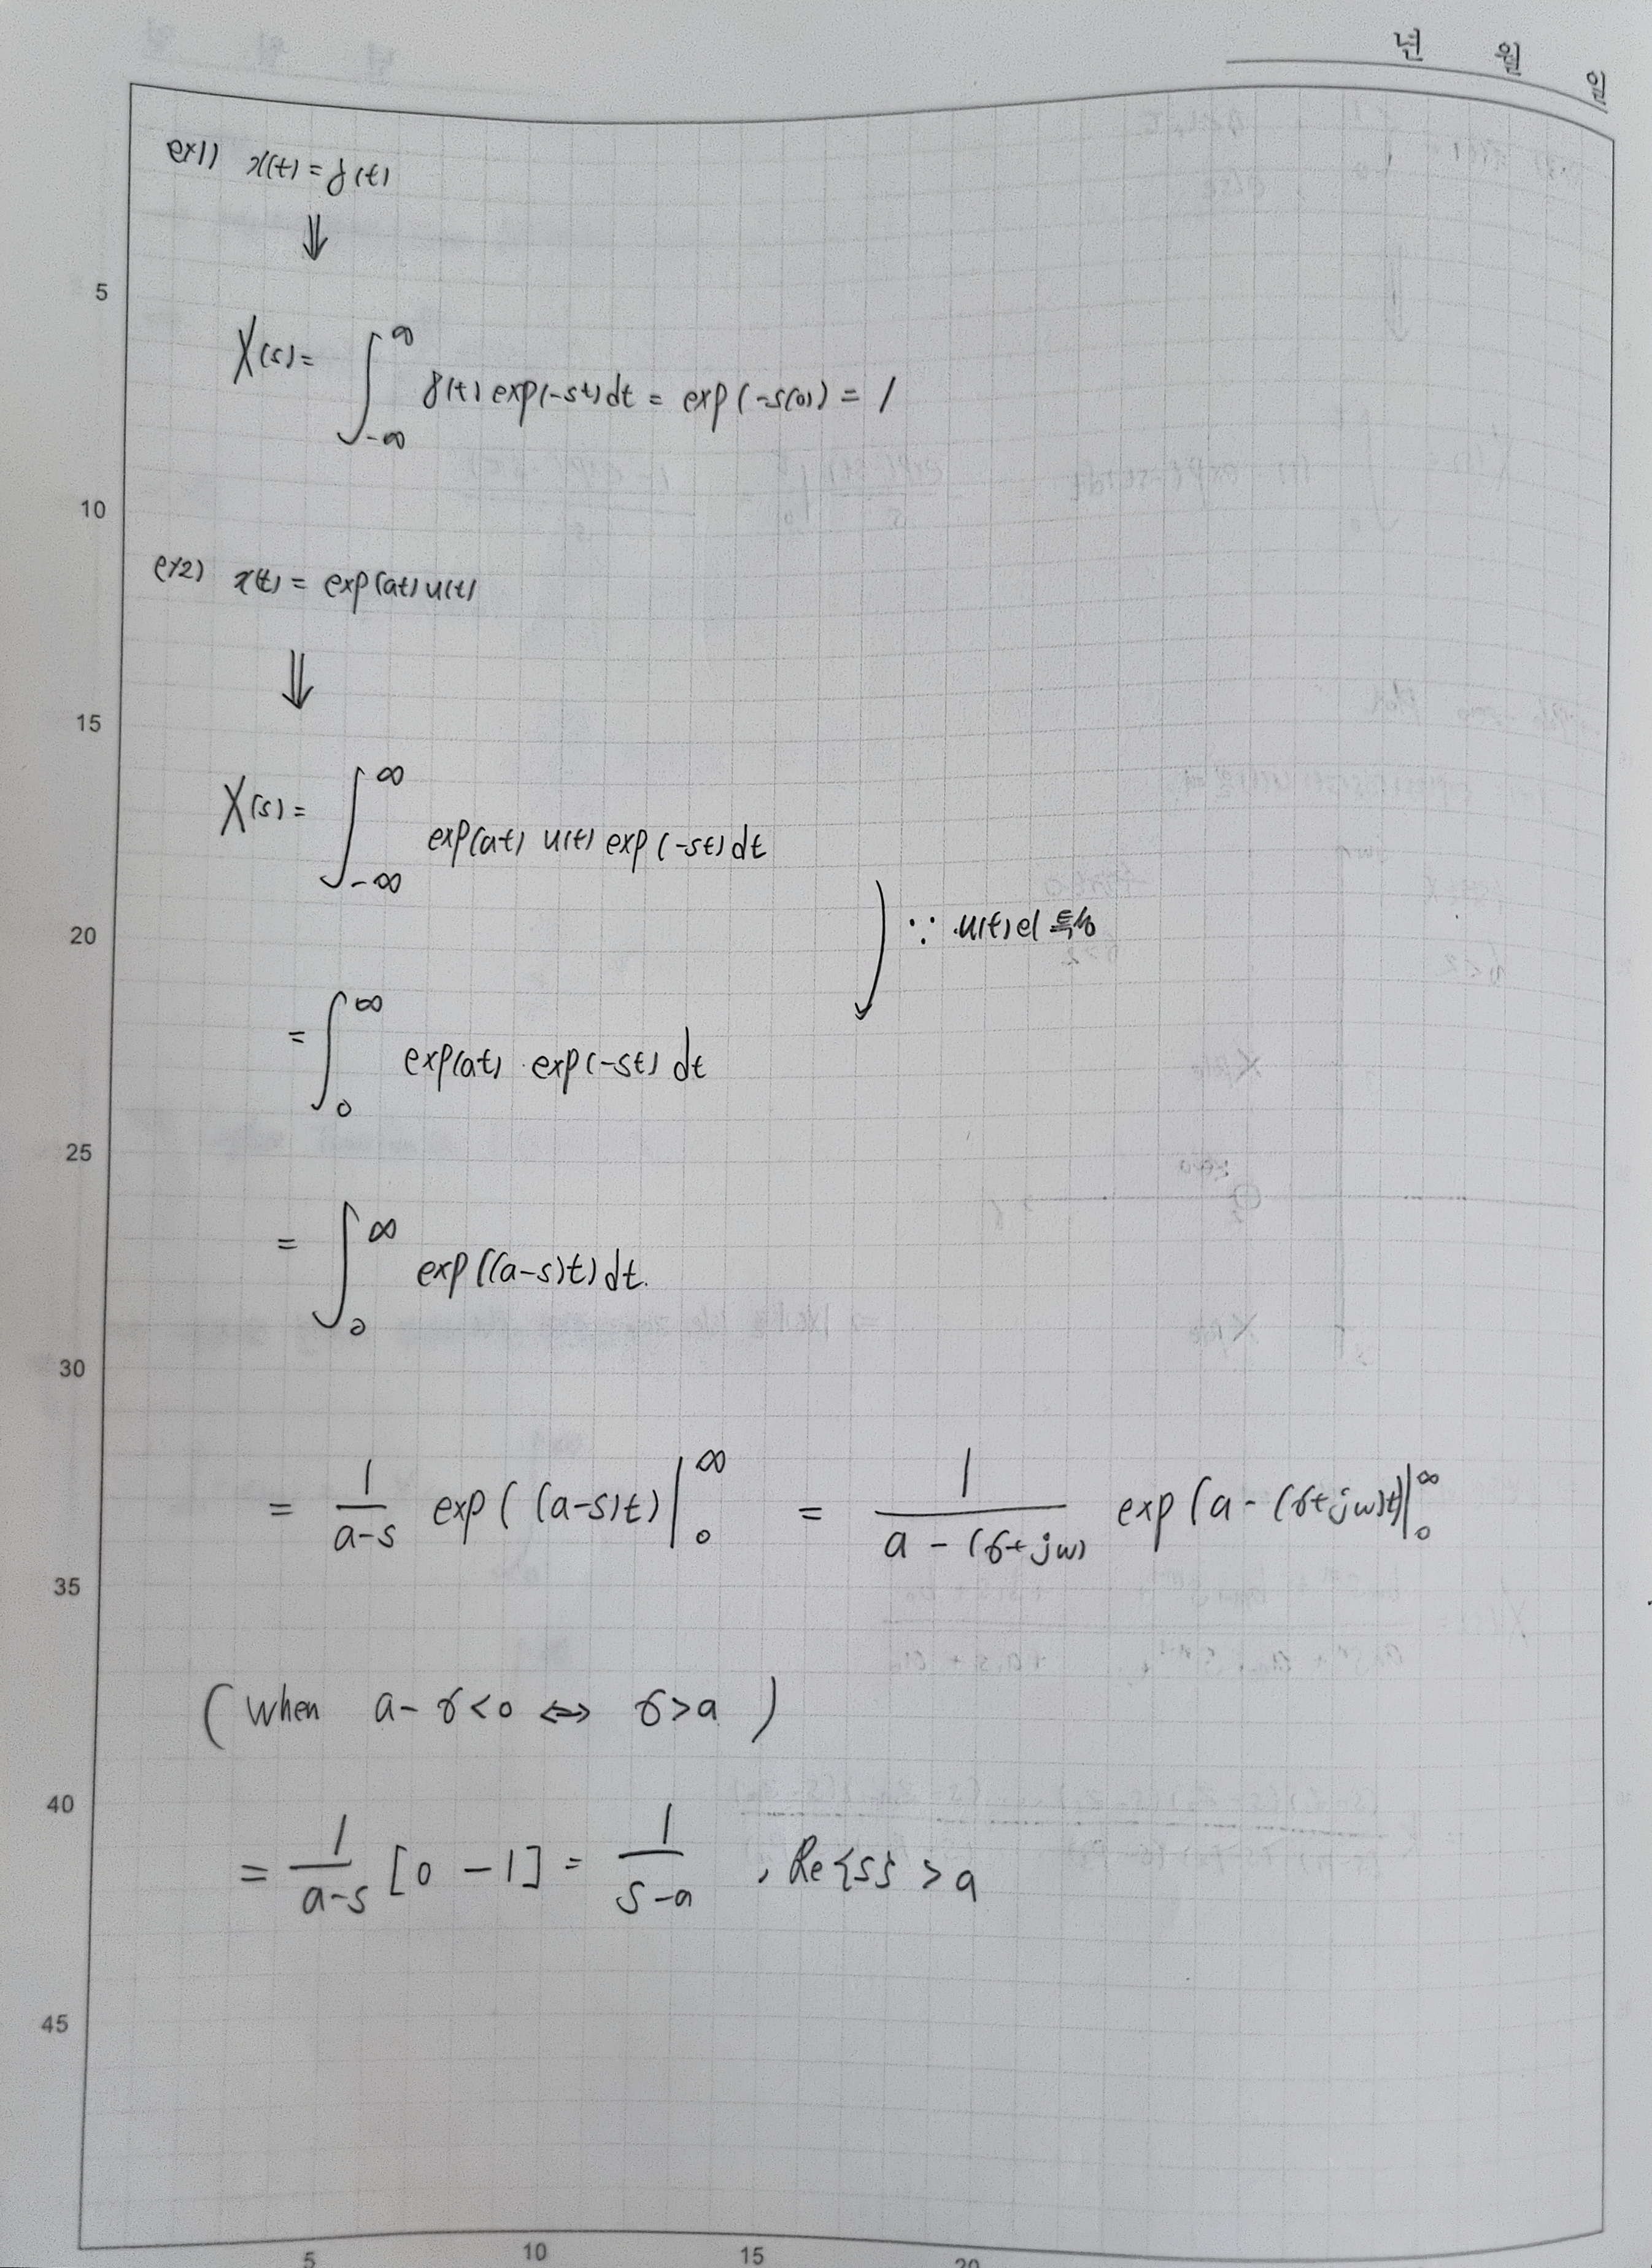 년 월 일
ex1) x(t) = δ(t)
⇓
X(s) = ∫_{-∞}^{∞} δ(t) exp(-st) dt = exp(-s(0)) = 1
ex2) x(t) = exp(at) u(t)
⇓
X(s) = ∫_{-∞}^{∞} exp(at) u(t) exp(-st) dt
∵ u(t)의 특성
= ∫_{0}^{∞} exp(at) · exp(-st) dt
= ∫_{0}^{∞} exp((a-s)t) dt.
= 1/(a-s) exp((a-s)t)|_{0}^{∞} = 1/(a-(σ+jw)) exp(a-(σ+jw)t)|_{0}^{∞}
(When a-σ<0 ⇔ σ>a)
= 1/(a-s) [0-1] = 1/(s-a) , Re{s} > a
5
10
15
20
25
30
35
40
45
5 10 15 20